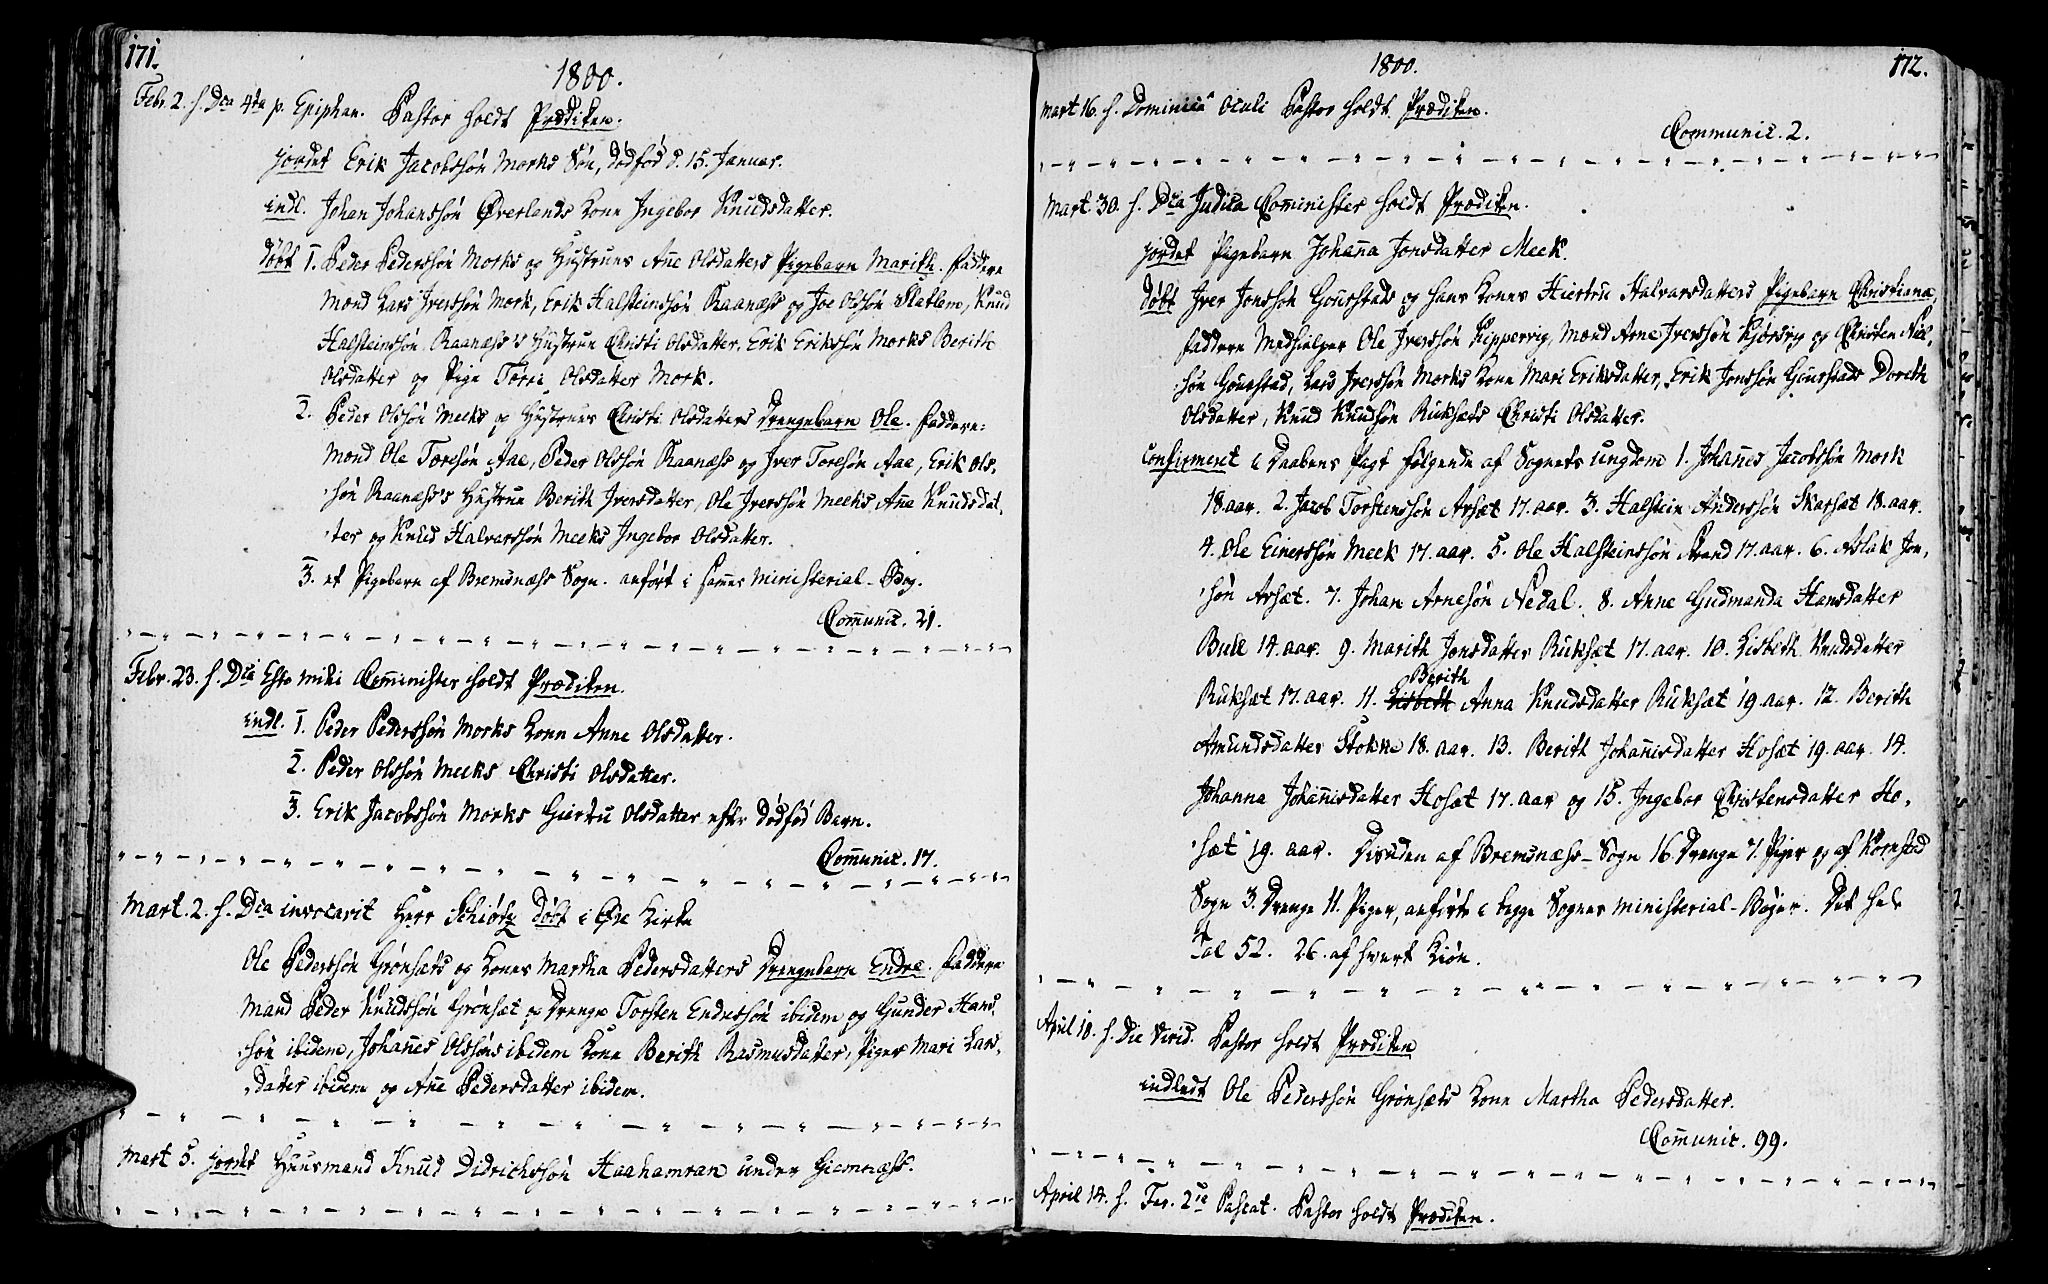 171.
1800.
Febr. 2. s. Dca 4ta p. Epiphan. Pastor holdt Prædiken.
jordet Erik Jacobssøn Morks Søn, dødfød d. 15. Januar.
indl. Johan Johanssøn Øverlands Kone Ingebor Knudsdatter.
døbt 1. Peder Pederssøn Morks og Hustrues Anne Olsdatters Pigebarn Marith. faddere
Mænd Lars Iverssøn Mork, Erik Halsteinssøn Raanæss og Joe Olssøn Slatlem, Knud
Halsteinssøn Raanæss's Hustrue Christi Olsdatter, Erik Erikssøn Morks Berith
Olsdatter og Pige Torri Olsdatter Mork.
2. Peder Olssøn Meeks og Hustrues Christi Olsdatters Drengebarn Ole. faddere:
Mænd Ole Toresøn Aae, Peder Olssøn Raanæss og Iver Toresøn Aae, Erik Ols-
søn Raanæss's Hustrue Berith Iversdatter, Ole Iverssøn Meeks Ane Knudsdat-
ter og Knud Halvarssøn Meeks Ingebor Olsdatter.
3. et Pigebarn af Bremsnæss Sogn. anført i sammes Ministerial-Bog.
Comunic. 21.
Febr. 23. s. Dca Esto mihi Cominister holdt Prædiken.
indl. 1. Peder Pederssøn Morks Kone Anne Olsdatter.
2. Peder Olssøn Meeks Christi Olsdatter.
3. Erik Jacobssøn Morks Giertru Olsdatter efter dødfød Barn.
Comunic. 17.
Mart. 2. s. Dca invocavit Herr Schiøtz døbt i Øre Kirke
Ole Pederssøn Grønsæts og Kones Martha Pedersdatters Drengebarn Endre. faddere
Mand Peder Knudssøn Grønsæt og Drenge Torsten Endressøn ibidem og Gunder Hans-
søn ibidem, Johanes Olssøns ibidem Kone Berith Rasmusdatter, Piger Mari Lars-
datter ibidem og Ane Pedersdatter ibidem.
Mart 5. jordet Huusmand Knud Didrichssøn Haahamran under Giemnæss.
1800.
172.
Mart 16. s. Dominica Oculi Pastor holdt Prædiken.
Communic. 2.
Mart. 30. s. Dca Judica Cominister holdt Prædiken.
jordet Pigebarn Johana Jonsdatter Meek.
døbt Iver Jonssøn Gourstads og hans Kones Hiertru Halvarsdatters Pigebarn Christiana,
faddere Medhielper Ole Iverssøn Kippervig, Mænd Arne Iverssøn Kjørsvig og Christen Niel-
søn Gourstad, Lars Iverssøn Morks Kone Mari Eriksdatter, Erik Jonssøn Gourstads Doreth
Olsdatter, Knud Knudssøn Ruksæts Christi Olsdatter.
Confirmert i Daabens Pagt følgende af Sognets ungdom 1. Johanes Jacobssøn Mork
18. aar. 2. Jacob Torstenssøn Arsæt 17. aar. 3. Halstein Anderssøn Skarsæt 18. aar.
4. Ole Einerssøn Meek 17. aar. 5. Ole Halsteinssøn Strand 17. aar. 6. Aslak Jon-
søn Arsæt. 7. Johan Arnesøn Nedal. 8. Anne Gudmanda Hansdatter
Bull 14. aar. 9. Marith Jonsdatter Ruksæt 17. aar. 10. Lisbeth Knudsdatter
Berith
Ruksæt 17. aar. 11. Lisbeth Anna Knudsdatter Ruksæt 19. aar. 12. Berith
Amundsdatter Stokke 18. aar. 13. Berith Johanisdatter Hosæt 19. aar. 14.
Johanna Johanisdatter Hosæt 17. aar og 15. Ingebor Christensdatter Ho-
sæt 19. aar. Desuden af Bremsnæss-Sogn 16. Drenge 7. Piger og af Kornstad
Sogn 3. Drenge 11. Piger, anførte i begge Sognes ministerial-Bøger. Det hele
tal 52. 26. af hvert Kiøn.
April 10. s. Die Virid. Pastor holdt Prædiken
indledt Ole Pederssøn Grønsæts Kone Martha Pedersdatter.
Comunic. 99.
April 14. s. Fer. 2de Pascat. Pastor holdt Prædiken.